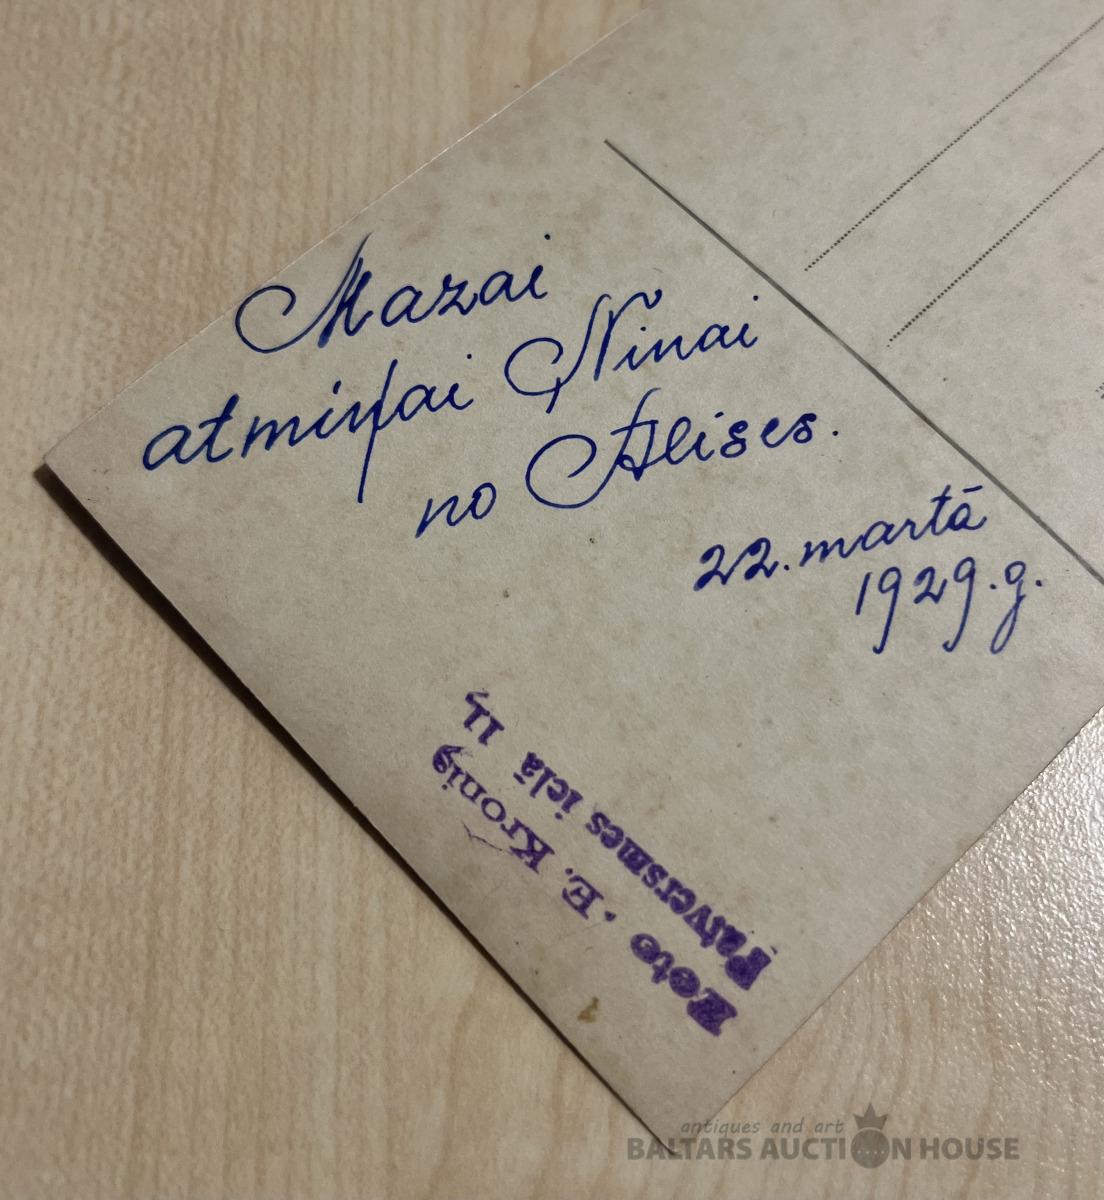 Mazai
atmiņai Ninai
no Alises.
22. martā
1929. g.
Foto . E. Kronig
Patversmes ielā 11,
antiques and art
BALTARS AUCTION HOUSE